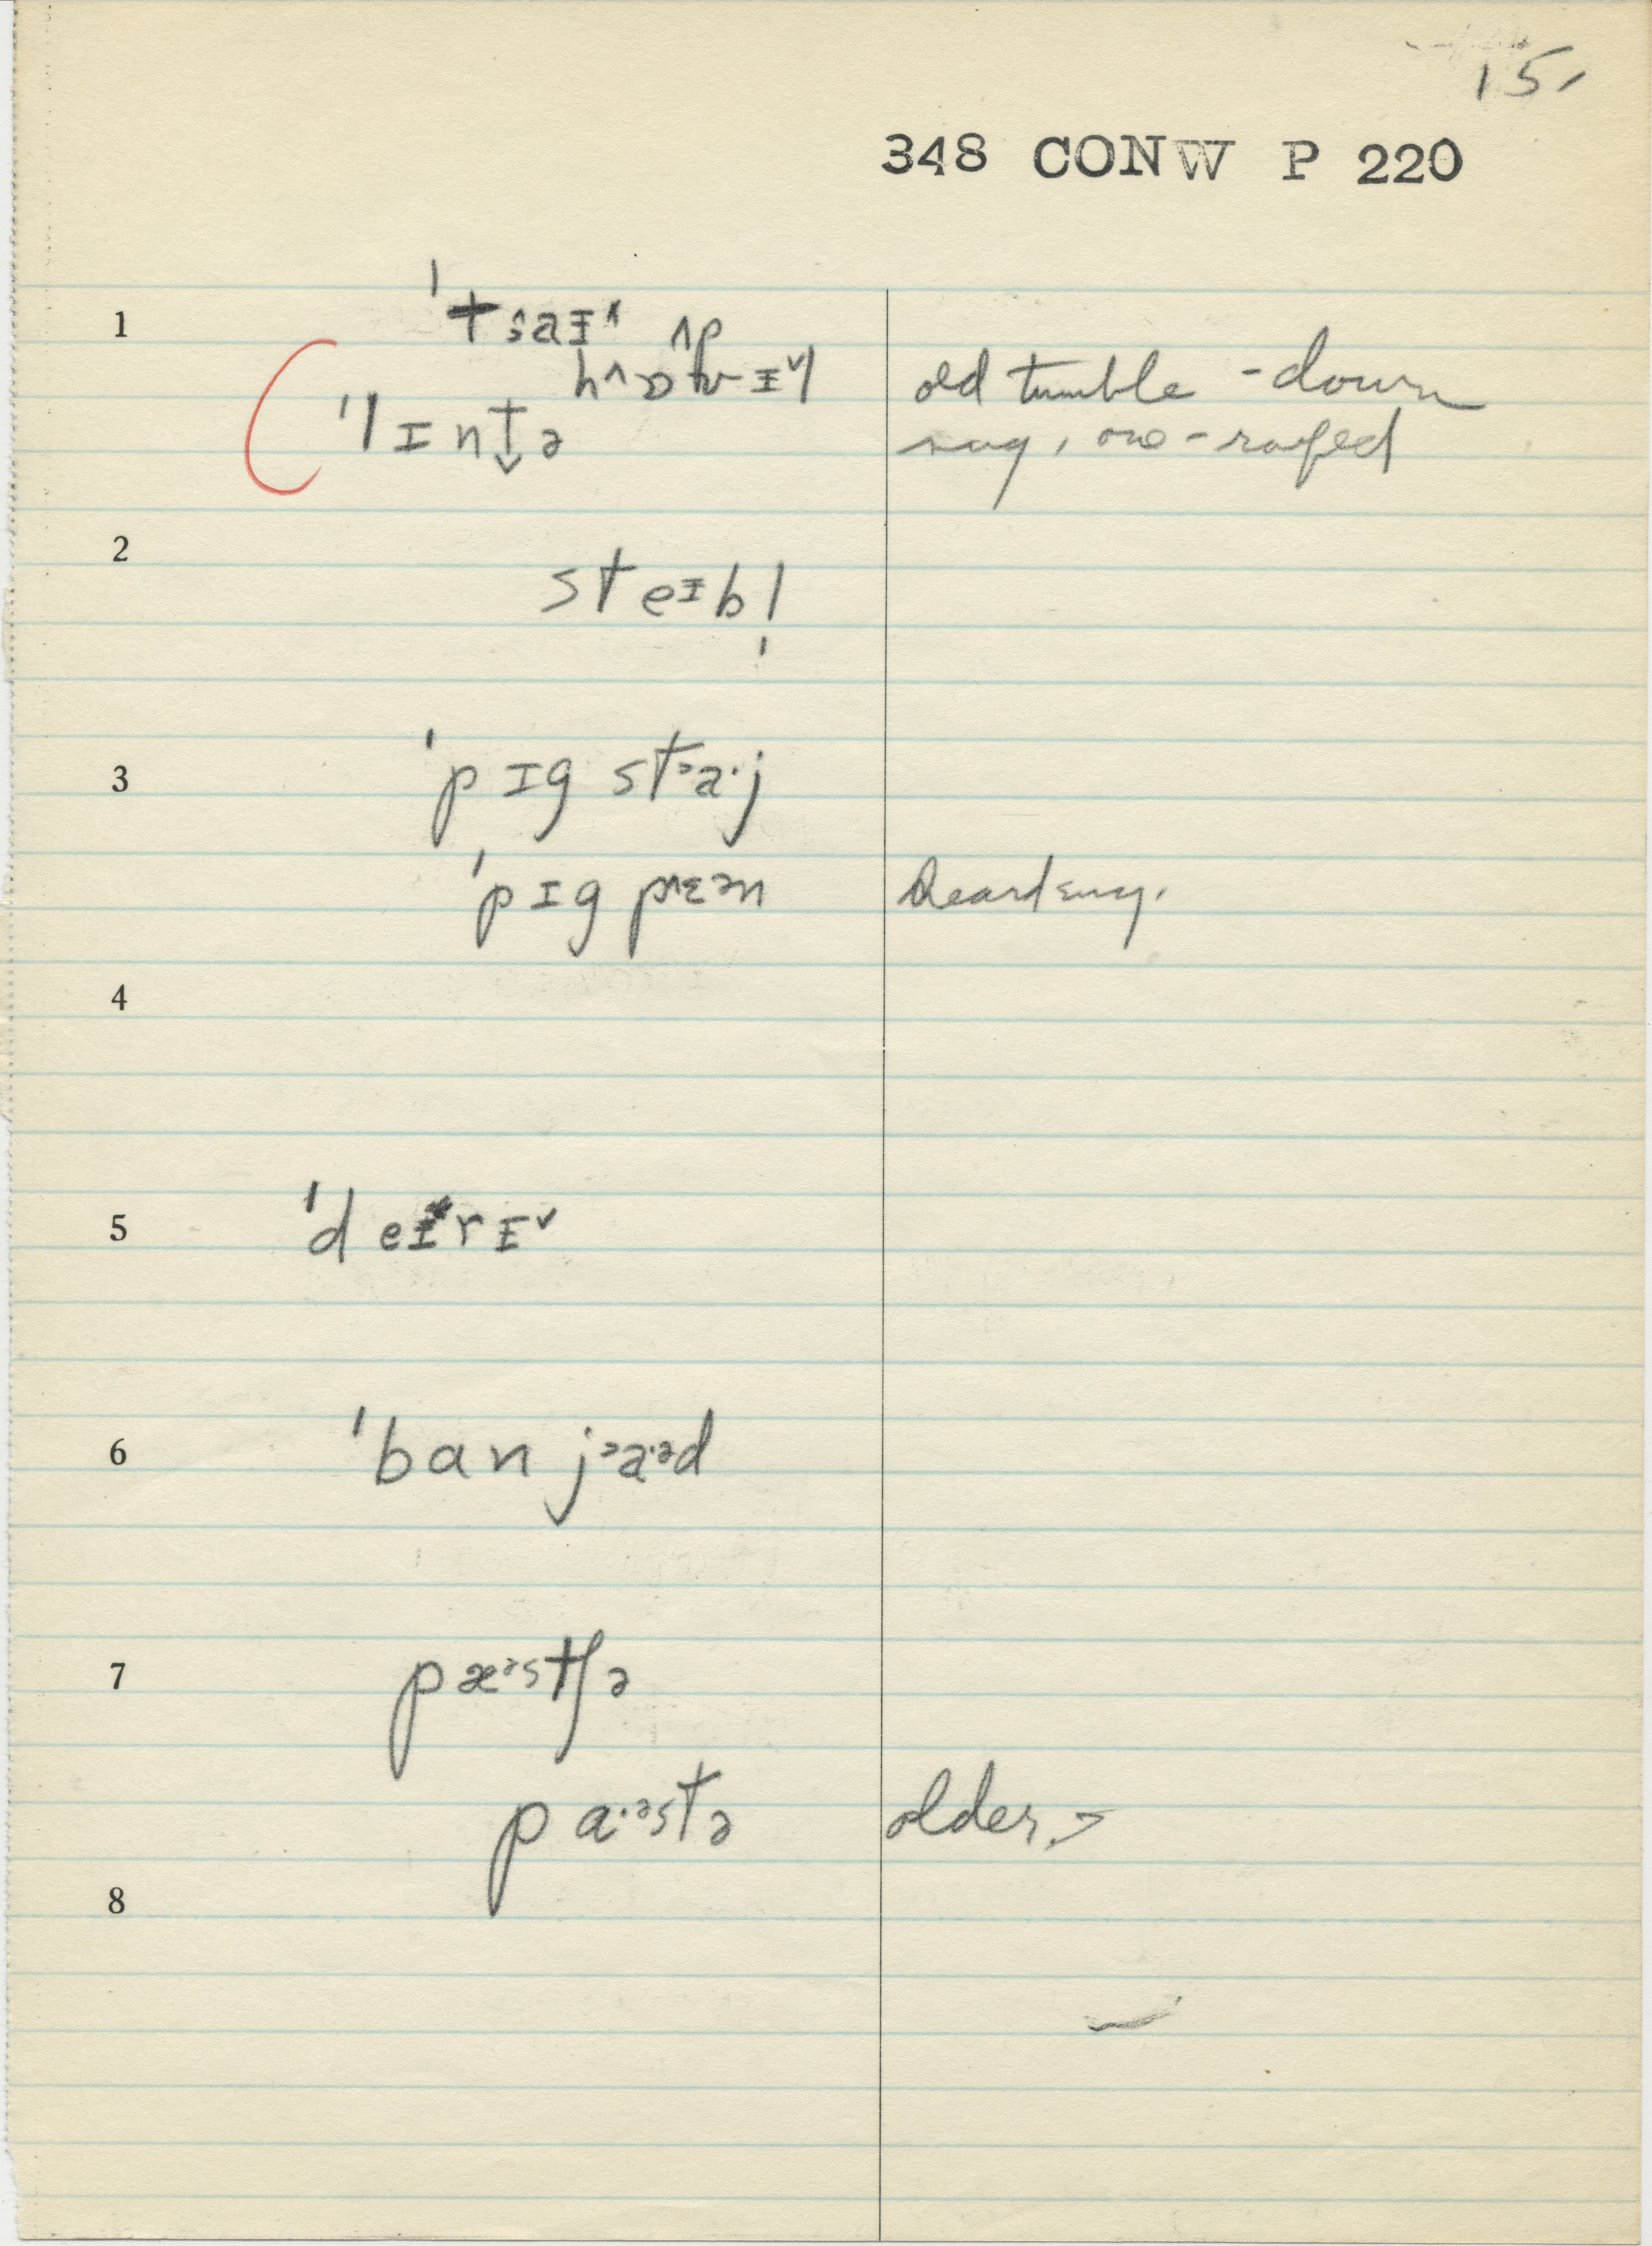 15.
348 CONW P 220
1
ˈtsaɪ^ ʌp
ˈlɪntə
old tumble-down
one-roofed
2
steɪbl̩
3
ˈpɪg stᵊa·j
ˈpɪg pɛᵊn
Heard
4
5
ˈdeɪrɪˇ
6
ˈban jᵊa·ᵊd
7
pæᵊstʃə
pa·ᵊstə older >
8